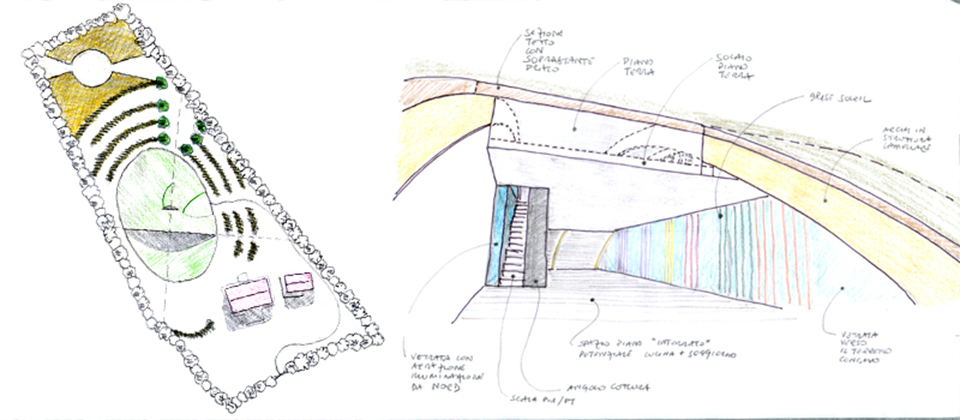 SEZIONE
TETTO
CON
SOPRASTANTE
PRATO
PIANO
TERRA
SOLAIO
PIANO
TERRA
BRISE SOLEIL
ARCHI IN
STRUTTURA
LAMELLARE
VETRATA CON
AERAZIONE
ILLUMINAZIONE
DA NORD
SCALA
ANGOLO COTTURA
SPAZIO PIANO "INTERRATO"
CUCINA + SOGGIORNO
VETRATA
VERSO
IL TERRENO